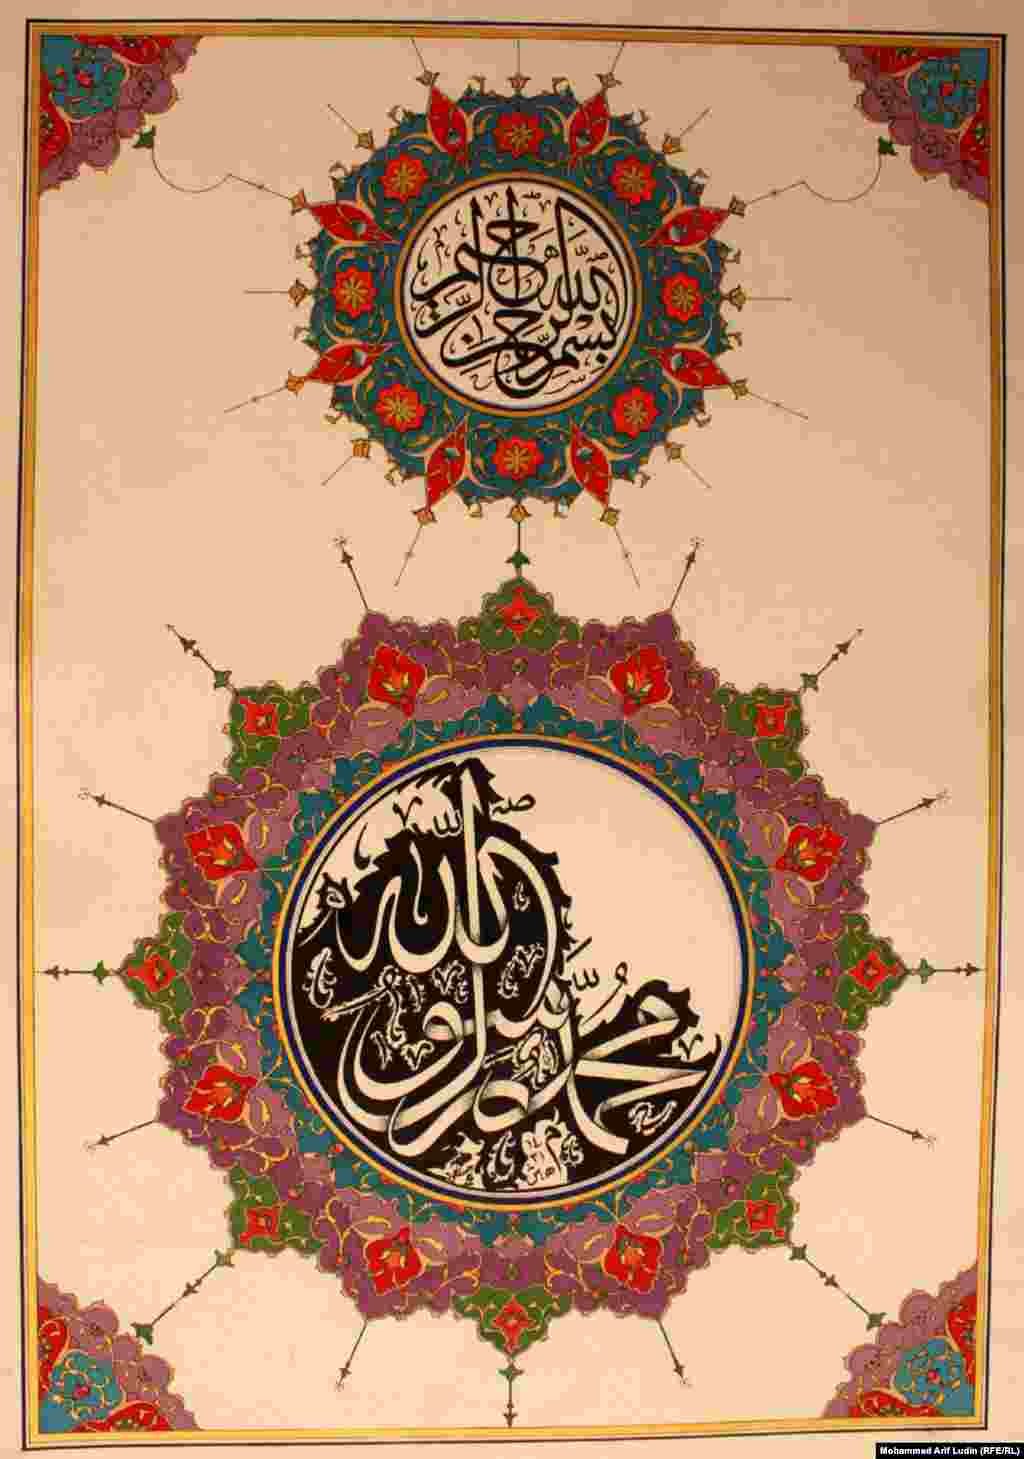 بسم الله الرحمن الرحيم
محمد رسول الله
Mohammed Arif Ludin (RFE/RL)